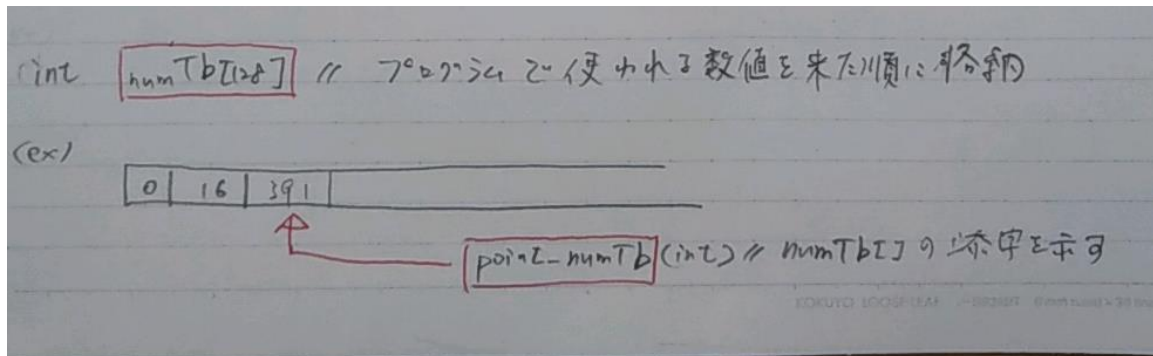 int numTb[128] // プログラムで使われる数値を来た順に格納
(ex)
0 16 391
point_numTb (int) // numTb[]の添字を示す
KOKUYO LOOSE-LEAF